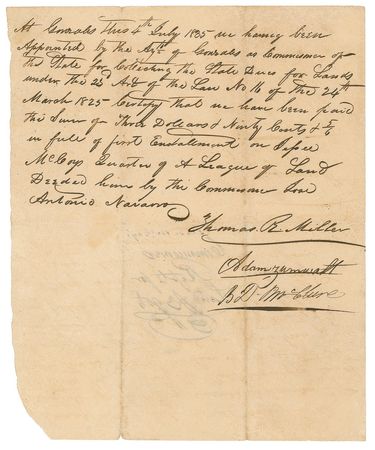 At Gonzales this 4th July 1835 we haveing been
Appointed by the Ayto of Gonzales as Commissioners of
the State for Collecting the State Dues for Lands
under the 22d Art of the Law No 16 of the 24th
March 1825 Certify that we have been paid
the Sum of Three Dollars & Ninty Cents &
in full of first Enstalment on Jesse
McCoys Quarter of A League of Land
Deeded him by the Commissioner Jose
Antonio Navarro
Thomas R Miller
Adam Zumwalt
B D McClure